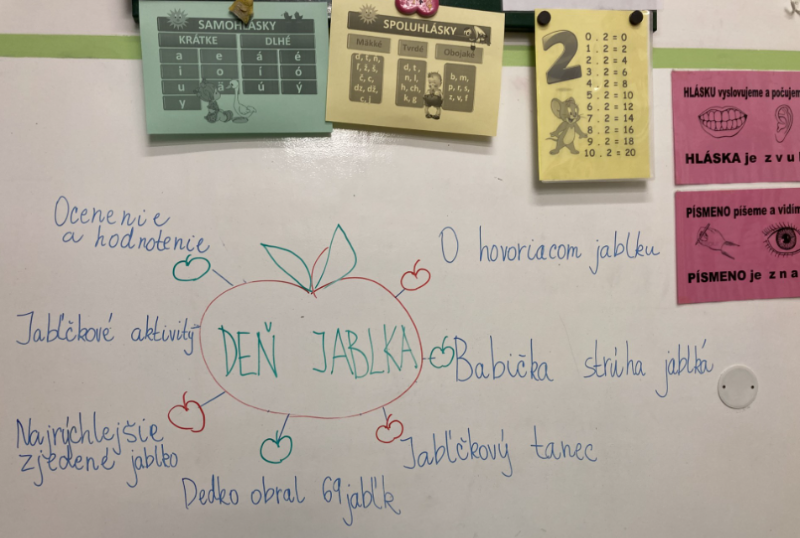 SAMOHLÁSKY
KRÁTKE DLHÉ
a e á é
i o í ó
u ä ú ý
y
SPOLUHLÁSKY
Mäkké Tvrdé Obojaké
d, t,
n, l,
h, ch,
k, g
b, m,
p, r, s,
z, v, f
2
0 . 2 = 0
1 . 2 = 2
2 . 2 = 4
3 . 2 = 6
4 . 2 = 8
5 . 2 = 10
6 . 2 = 12
7 . 2 = 14
8 . 2 = 16
9 . 2 = 18
10 . 2 = 20
HLÁSKU vyslovujeme a počujem
HLÁSKA je z v u
PÍSMENO píšeme a vidím
PÍSMENO je z n a
Ocenenie
a hodnotenie
O hovoriacom jablku
Jabĺčkové aktivity
DEŇ JABLKA
Babička strúha jablká
Najrýchlejšie
zjedené jablko
Jabĺčkový tanec
Dedko obral 69 jabĺk